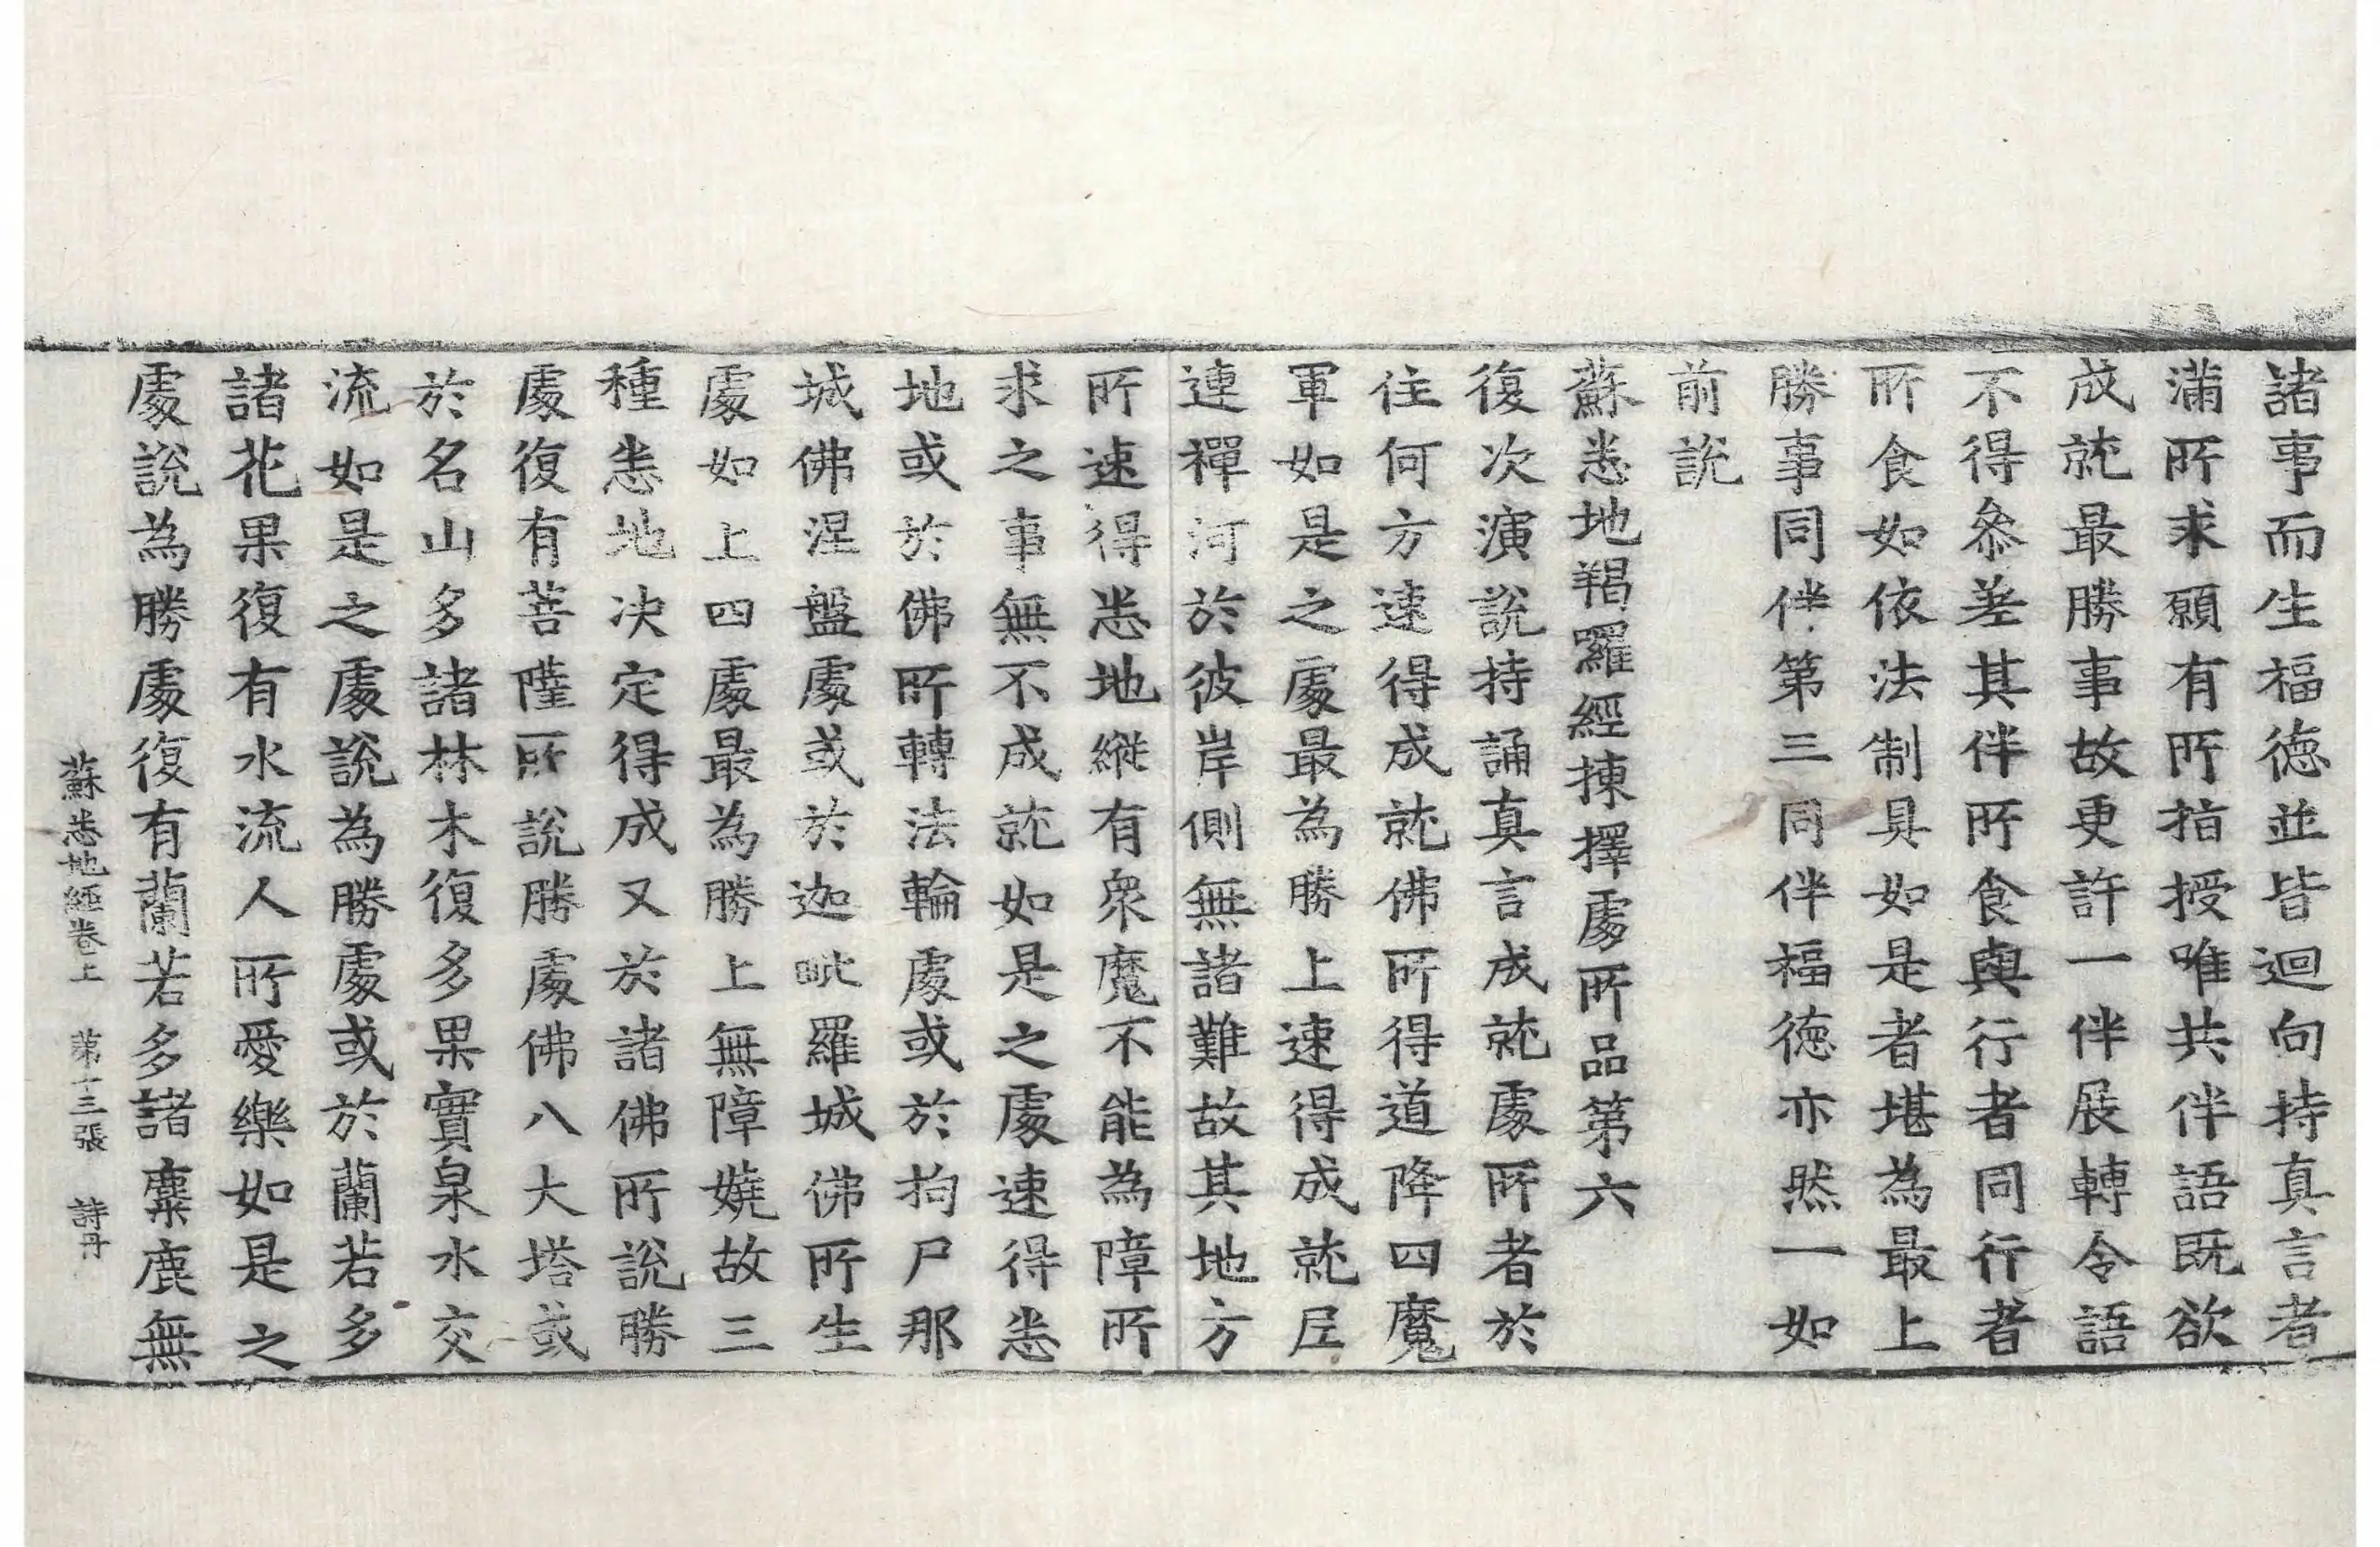 諸事而生福德並皆迴向持真言者
滿所求願有所指授唯共伴語既欲
成就最勝事故更許一伴展轉令語
不得叅差其伴所食與行者同行者
所食如依法制具如是者堪為最上
勝事同伴第三同伴福德亦然一如
前說
蘇悉地羯羅經揀擇處所品第六
復次演說持誦真言成就處所者於
住何方速得成就佛所得道降四魔
軍如是之處最為勝上速得成就尼
連禪河於彼岸側無諸難故其地方
所速得悉地縱有眾魔不能為障所
求之事無不成就如是之處速得悉
地或於佛所轉法輪處或於拘尸那
城佛涅盤處或於迦毗羅城佛所生
處如上四處最為勝上無障嬈故三
種悉地決定得成又於諸佛所說勝
處復有菩薩所說勝處佛八大塔或
於名山多諸林木復多果實泉水交
流如是之處說為勝處或於蘭若多
諸花果復有水流人所愛樂如是之
處說為勝處復有蘭若多諸麋鹿無
蘇悉地經卷上 第十三張 詩丹